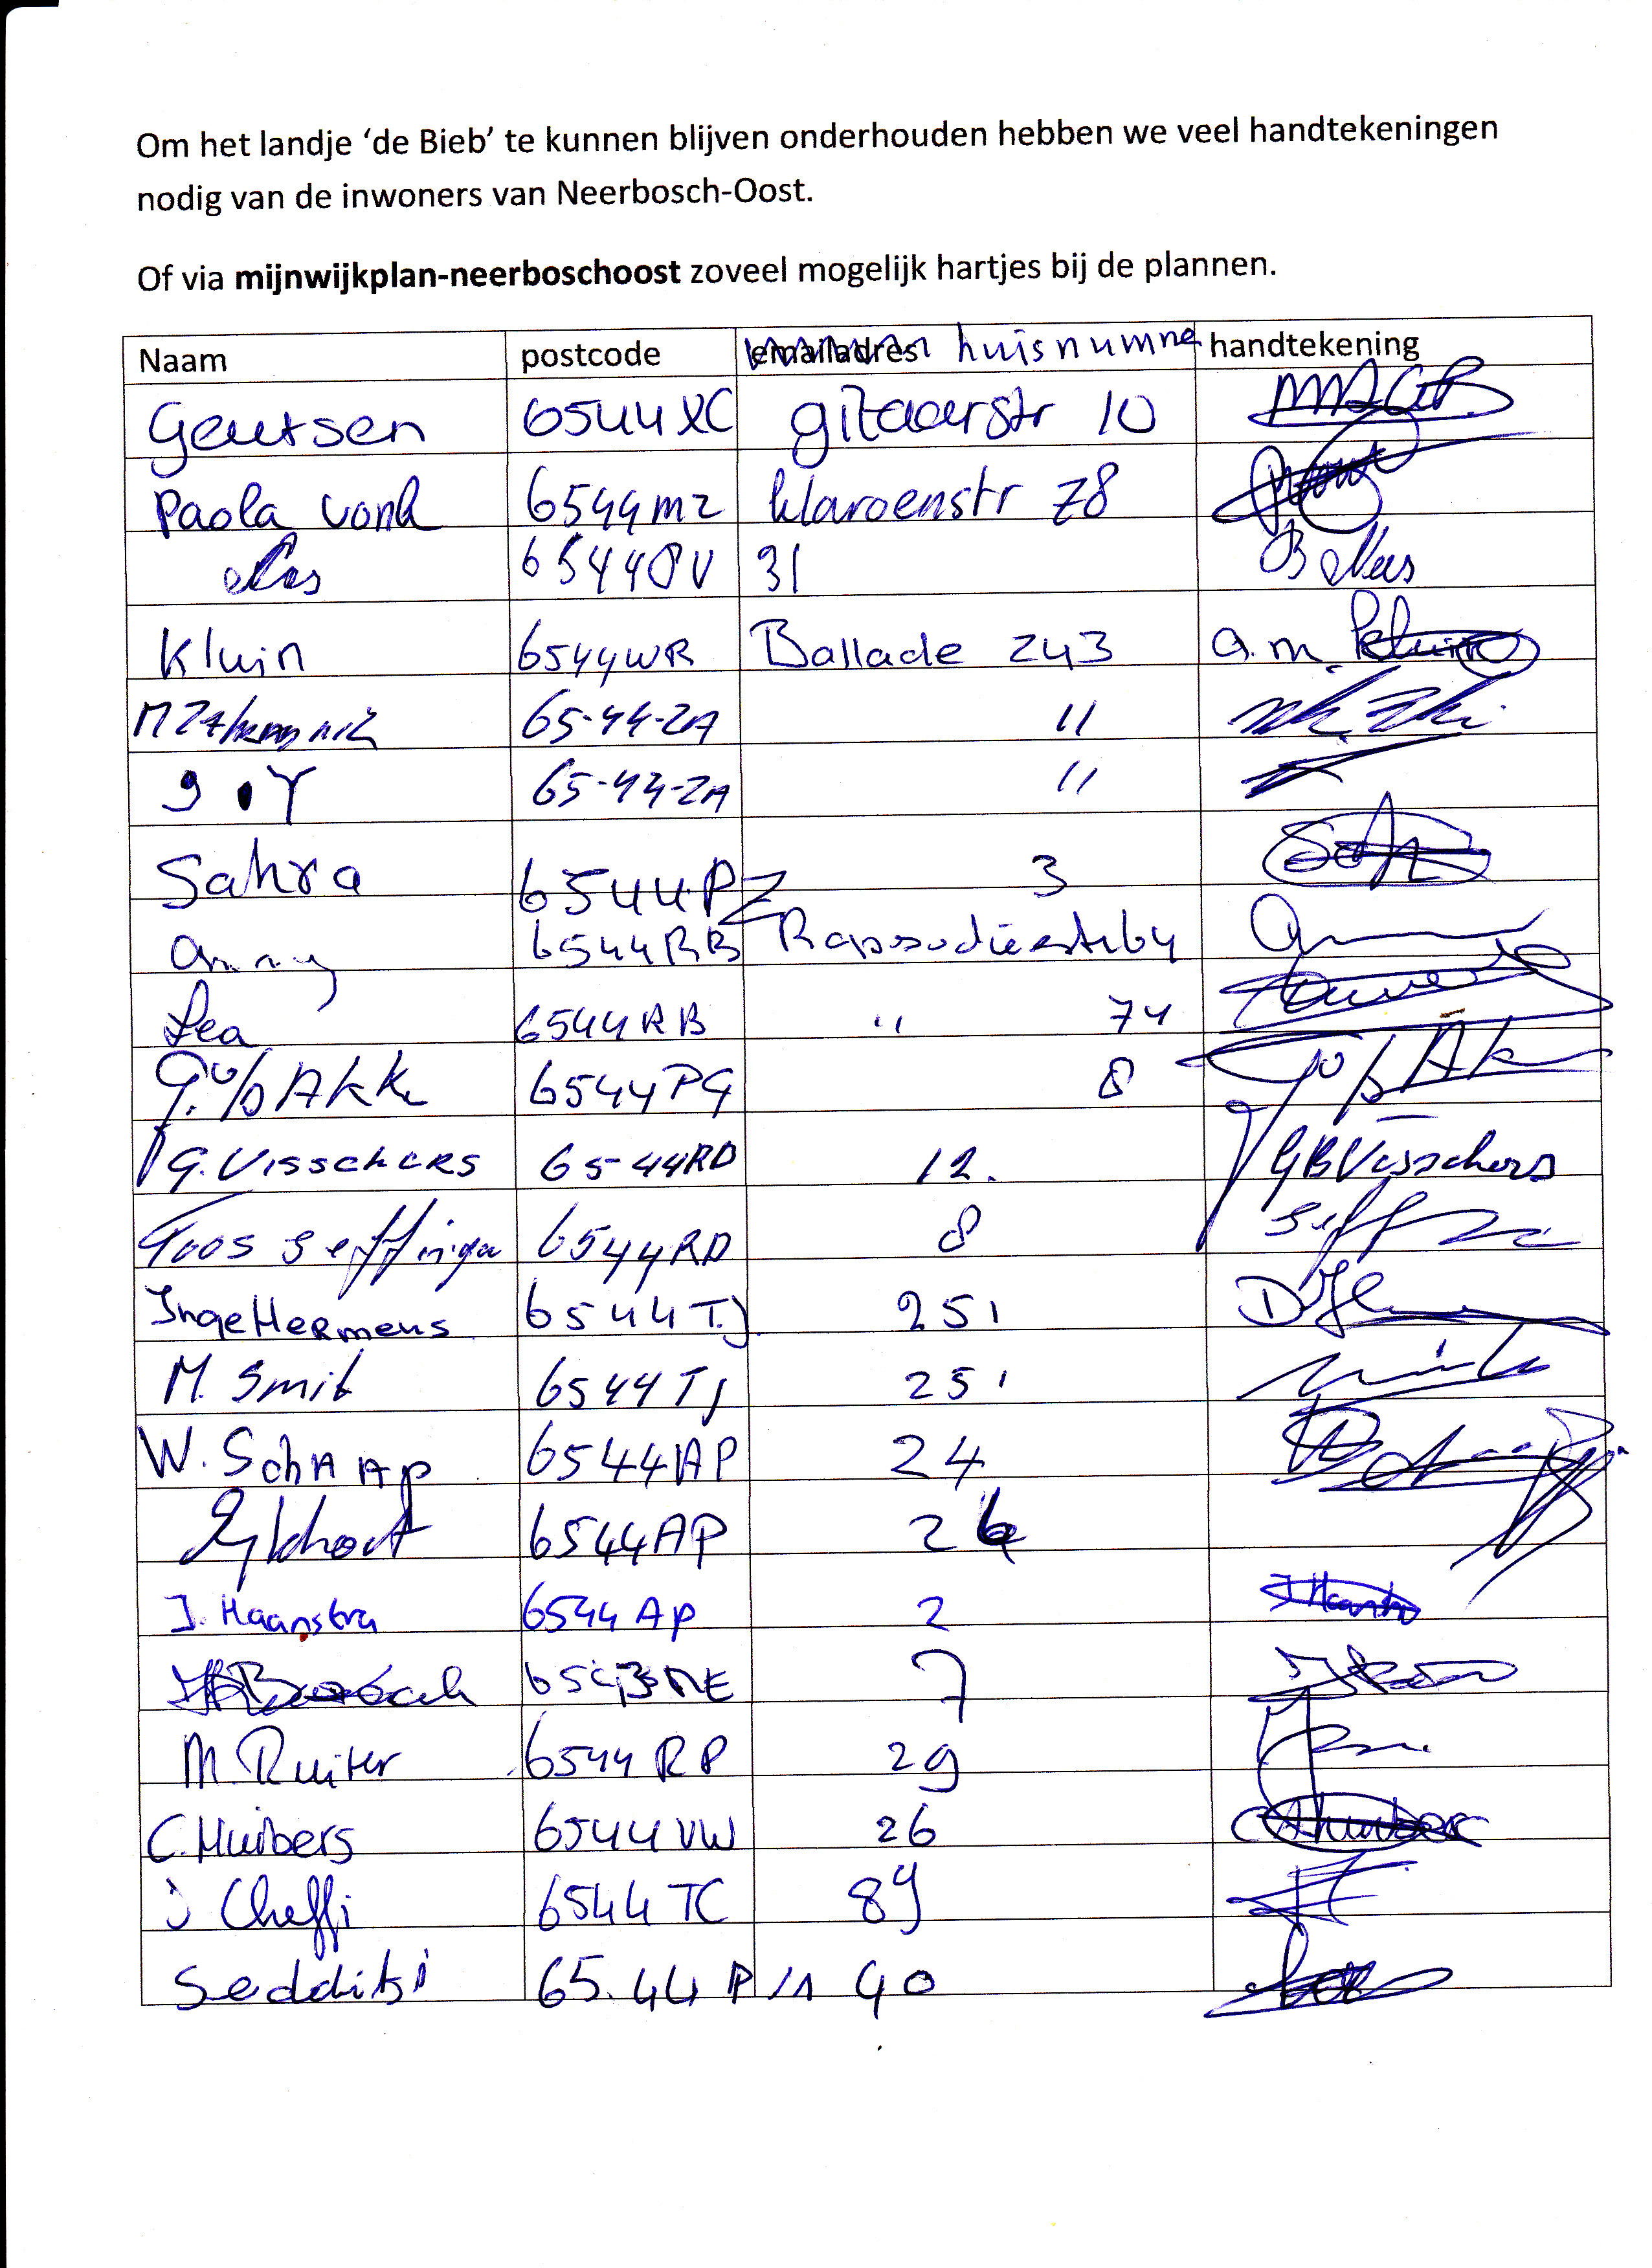 Om het landje ‘de Bieb’ te kunnen blijven onderhouden hebben we veel handtekeningen
nodig van de inwoners van Neerbosch-Oost.
Of via mijnwijkplan-neerboschoost zoveel mogelijk hartjes bij de plannen.
Naam postcode emailadres huisnumme handtekening
Geutsen 6544XC gitaarstr 10
Paola vonk 6544mz klaroenstr 78
31
Kluin 6544WR Ballade 243 a.m. Kluin
65-44-ZA 11
65-44-ZA 11
Sahra 6544PZ 3
anny 6544RB
Lea 6544RB " 74
6544PG 8
G. Visschers 65-44RD 12. GB Visschers
Toos Seffinga 6544RD 8
Inge Hermens 6544TJ 251
M. Smit 6544TJ 251
W. SchAAp 6544AP 24
6544AP
J. Haanstra 6544AP 2
7
M. Ruiter 6544RP 29
C. Huibers 6544VW 26
J Cheffi 6544TC 89
Sedditi 65.44 40